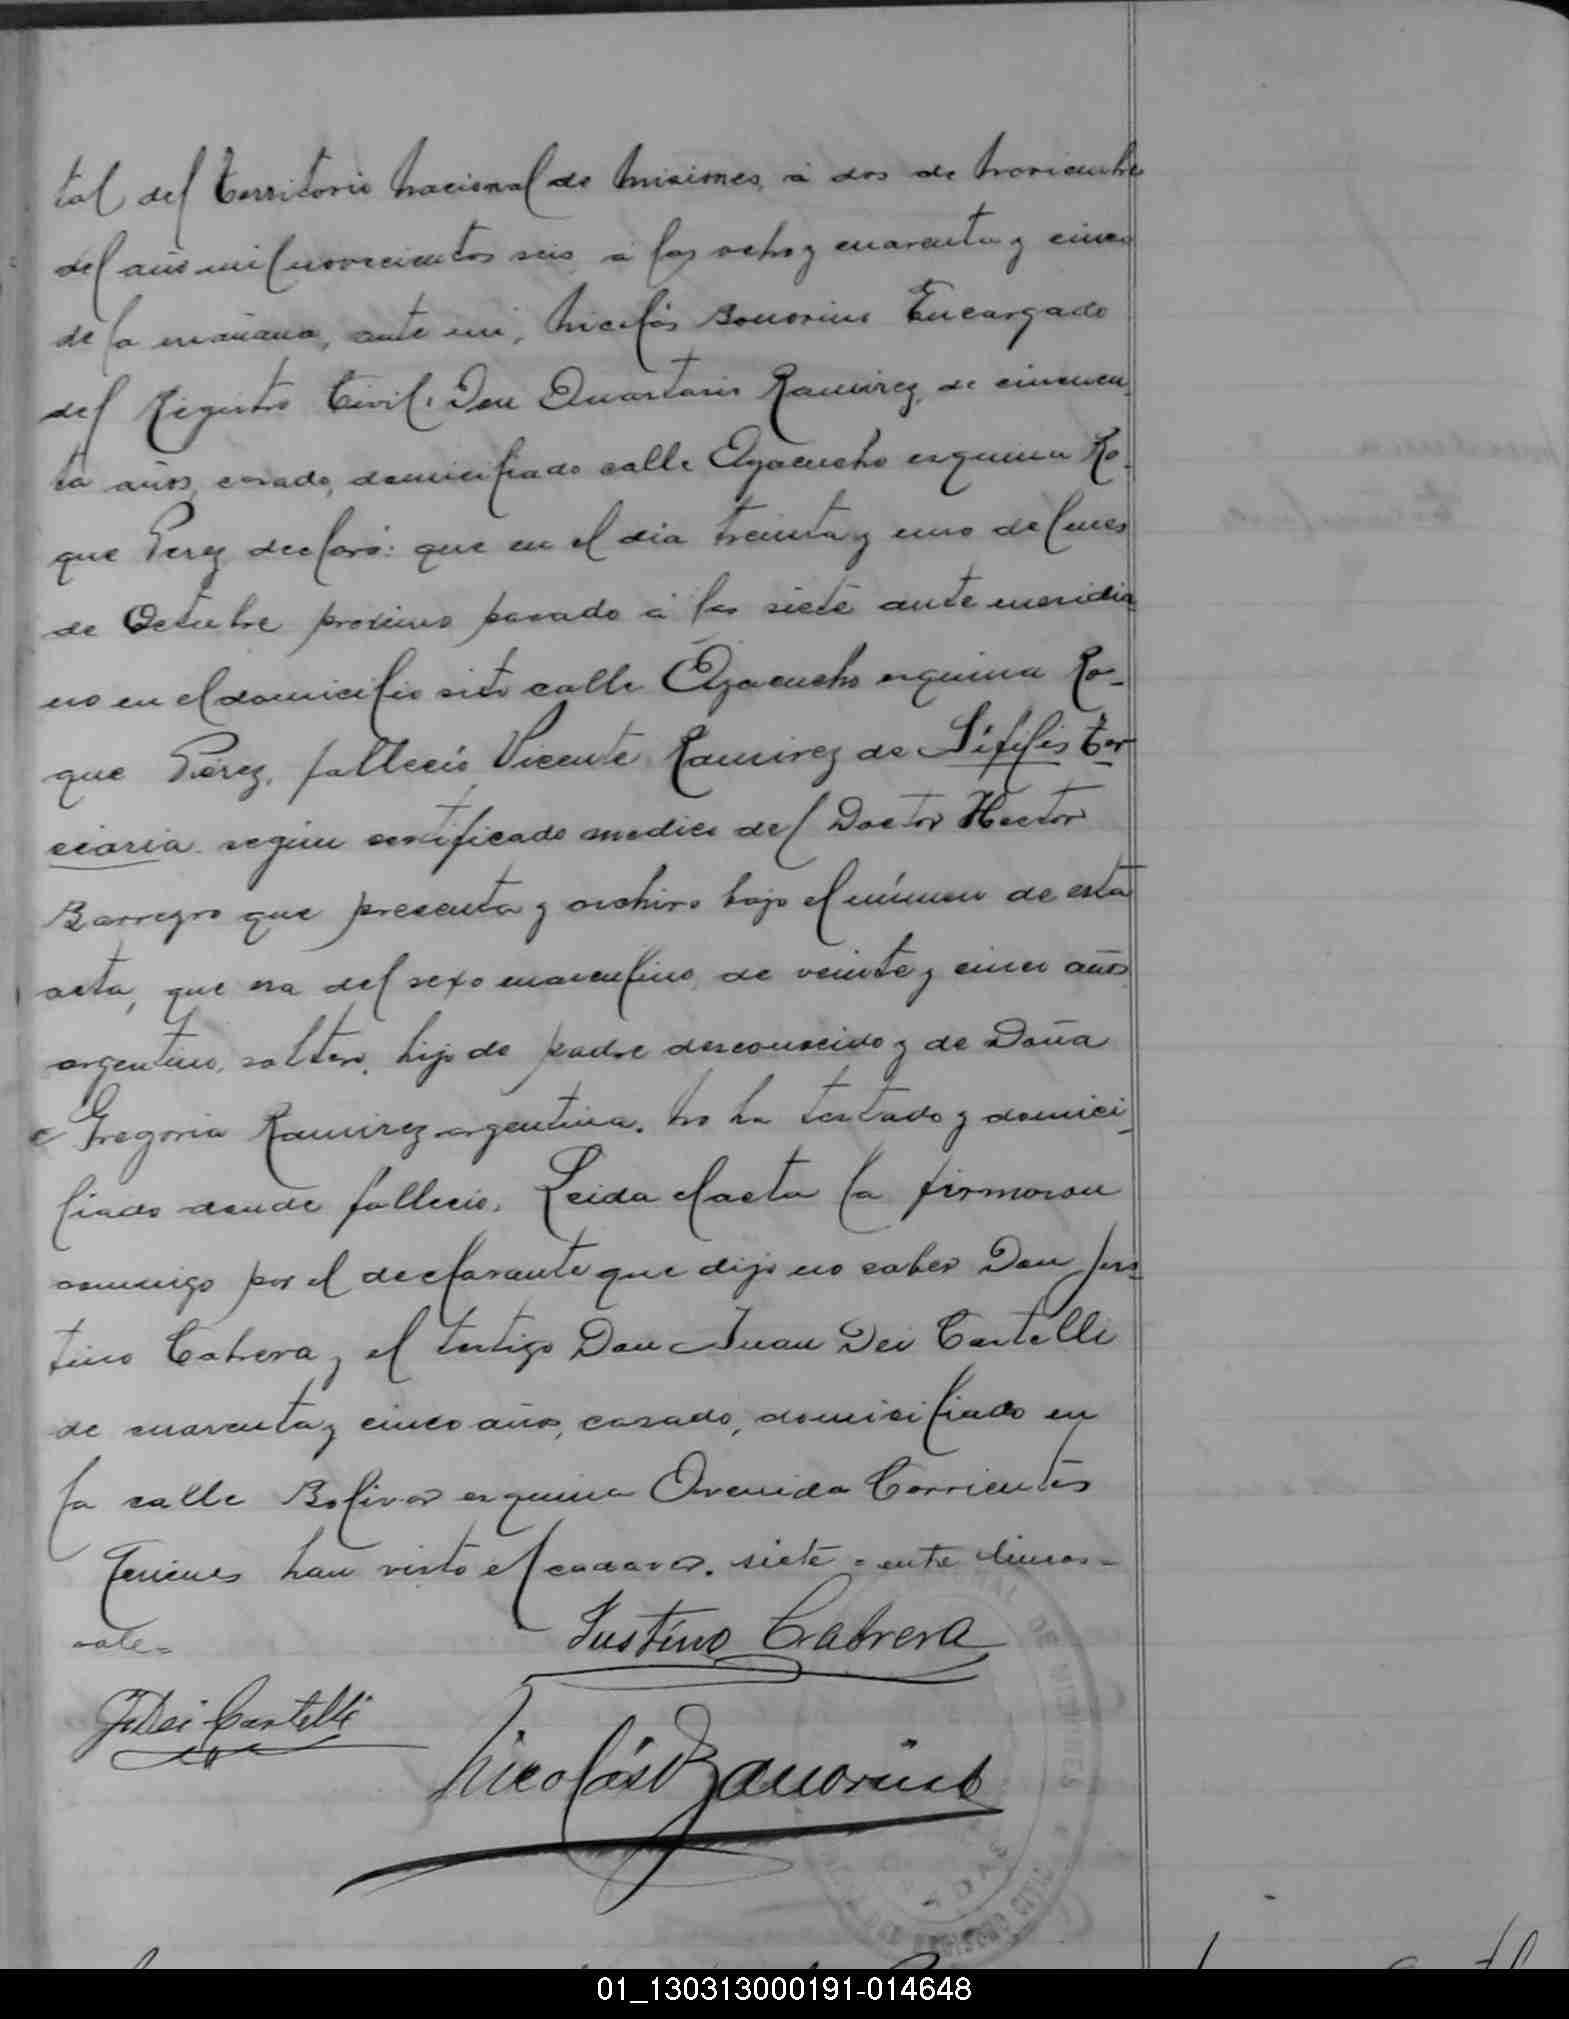 tal del Territorio Nacional de Misiones, á dos de Noviembre
del año mil novecientos seis á las ocho y cuarenta y cinco
de la mañana, ante mi, Nicolás Bonorino Encargado
del Registro Civil. Don Ramirez, de cincuen
ta años, casado, domiciliado calle Ayacucho esquina Ro-
que Perez declaró: que en el dia treinta y uno del mes
de Octubre próximo pasado á las siete ante meridia
no en el domicilio sito calle Ayacucho esquina Ro-
que Pérez, falleció Vicente Ramirez de Sífilis Ter
ciaria según certificado medico del Doctor Hector
Barreyro que presenta y archivo bajo el número de esta
acta, que era del sexo masculino, de veinte y cinco años
argentino, soltero, hijo de padre desconocido y de Doña
Gregoria Ramirez argentina. No ha testado y domici
liado donde falleció. Leida el acta la firmaron
conmigo por el declarante que dijo no saber Don Jus-
tino Cabrera y el testigo Don Juan Dei Castelli
de cuarenta y cinco años, casado, domiciliado en
la calle Bolivar esquina Avenida Corrientes
quienes han visto el cadaver. siete = entre lineas =
vale =
Justino Cabrera
J. Dei Castelli
Nicolás Bonorino
DE MISIONES
REGISTRO CIVIL
01_130313000191-014648